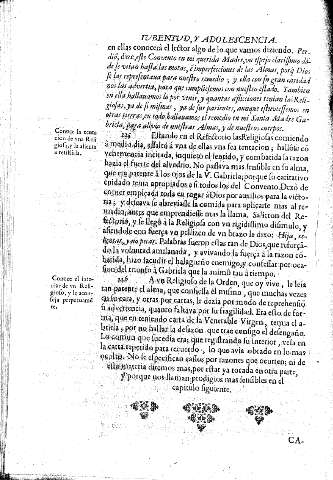 IUBENTUD, Y ADOLESCENCIA.
en ellas conocerà el letor algo de lo que vamos diziendo. Per-
diò, dize, este Convento en mi querida Madre, vn espejo clarissimo dõ-
de se veian hasta las motas, è imperfecciones de las Almas, porq̃ Dios
se las representava para nuestro remedio; y ella con su gran caridad
nos las advertia, para que cumpliessemos con nuestro estado. Tambien
en ella hallavamos lo por venir, y quantas aflicciones tenian las Reli-
giosas, ya de si mismas, ya de sus parientes, aunque estuviessemos en
otras tierras, en ella solo hallavamos el remedio en mi Santa Madre Ga-
briela, para alivio de nuestras Almas, y de nuestros cuerpos.
Conoce la
de vna Reli
giosa, y la alienta
a resistirla.
225 Estando en el Refitorio las Religiosas comiendo
à medio dia, assaltò à vna de ellas vna fea tentacion, hallòse cõ
vehemencia incitada, inquieto el sentido, y combatida la razon
hazia el fuerte del alvedrio. No passava mas sensible en su alma,
que era patente à los ojos de la V. Gabriela; porque su caritativo
cuidado tenia apropiados à si todos los del Convento. Dexò de
comer empleada toda en rogar à Dios por auxilios para la victo-
ria; y deseava se abreviasse la comida para aplicarse mas al re-
medio, antes que emprendiesse mas la llama. Salieron del Re-
fitorio, y se llegò à la Religiosa con vn rigidissimo dissimulo, y
assiendole con fuerça vn pellizco de vn brazo le dixo: Hija, re-
, y no pecar. Palabras fueron estas tan de Dios, que reforçã-
do la voluntad amilanada, y avivando la fuerça à la razon cõ-
batida, hizo fuesse el halagueño enemigo, y confessar por oca-
sion del triunfo à Gabriela que la animò tan à tiempo.
Conoce el inte-
rior de vn Reli-
gioso, y le acon-
seja
te.
226 A vn Religioso de la Orden, que oy vive, le leia
tan patente el alma, que confiessa èl mismo, que muchas vezes
, y otras por cartas, le dezia por modo de reprehensiõ
ù advertencia, quanto faltava por su fragilidad. Era esto de for-
ma, que en teniendo carta de la Venerable Virgen, temia el a-
brirla, por no hallar la desazon que trae consigo el desengaño.
Lo comun que sucedia era; que registrando su interior, veia en
la carta repetido para recuerdo, lo que avia obrado en lo mas
oculto. No se especifican casos por razones que ocurren; ni de
esta materia diremos mas, por estar ya tocada en otra parte,
y porque nos llaman prodigios mas sensibles en el
capitulo siguiente.
CA-